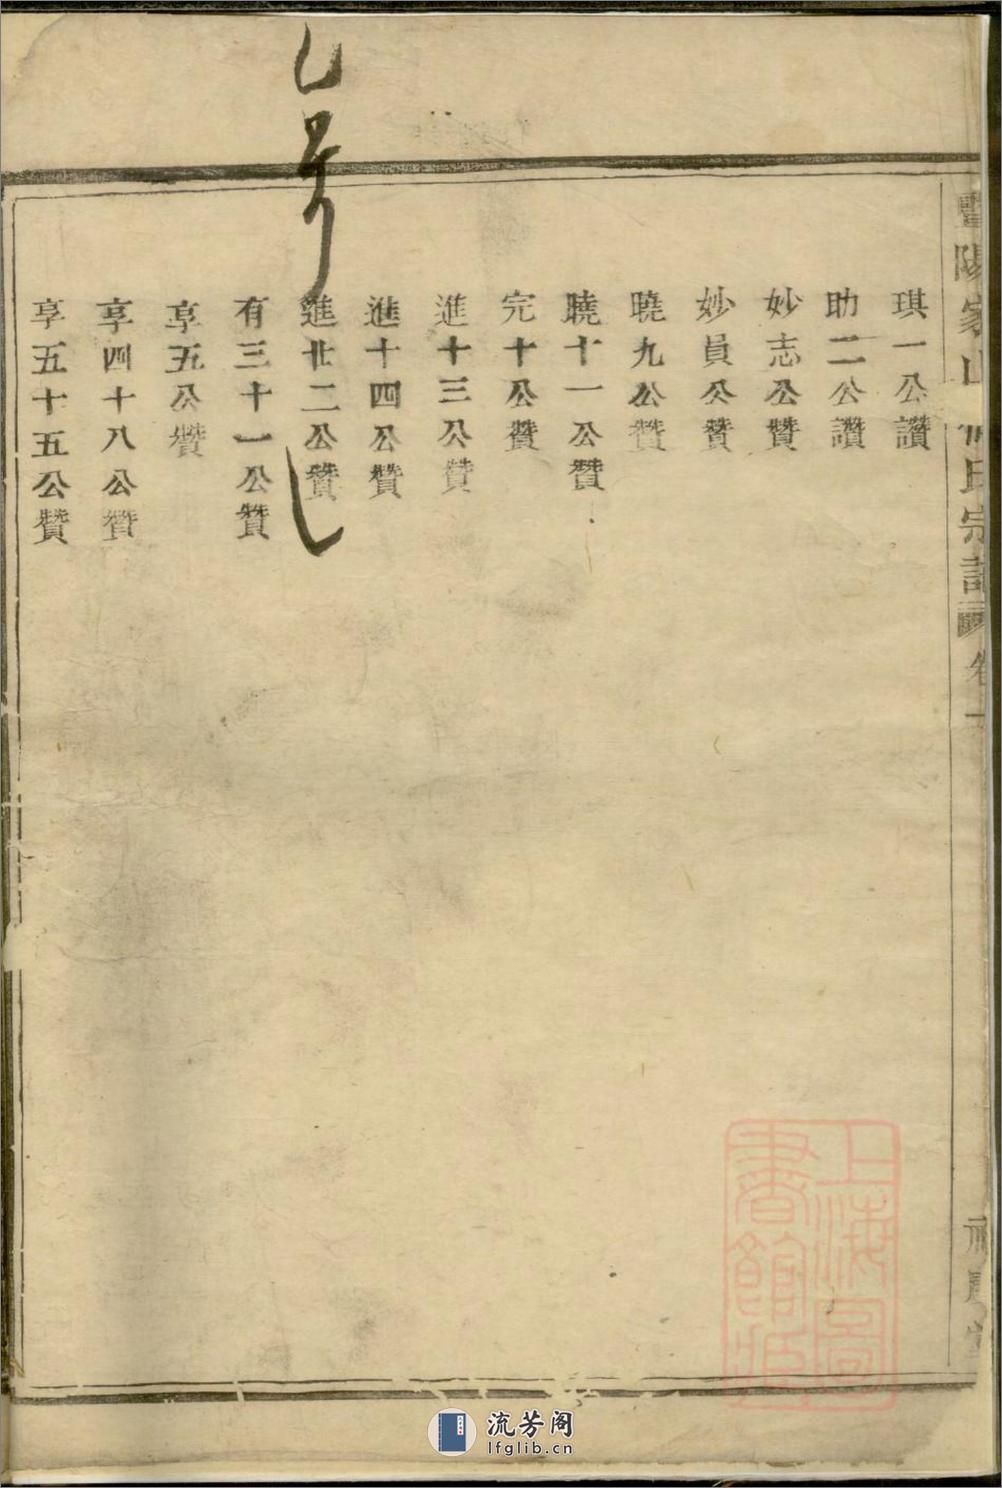 暨陽家山何氏宗譜 卷一
琪一公讚
助二公讚
妙志公贊
妙員公贊
曉九公贊
曉十一公贊
完十公贊
進十三公贊
進十四公贊
進廿二公贊
有三十一公贊
享五公贊
享四十八公贊
享五十五公贊
上海圖
書館藏
流芳阁
lfglib.cn